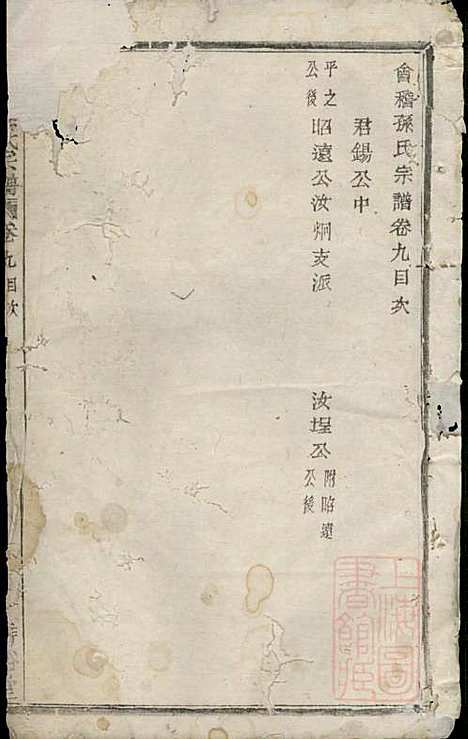 會稽孫氏宗譜卷九目次
君錫公中
平之公後 昭遠公汝炯支派 汝埕公 附昭遠公後
上海圖書館藏
卷九目次